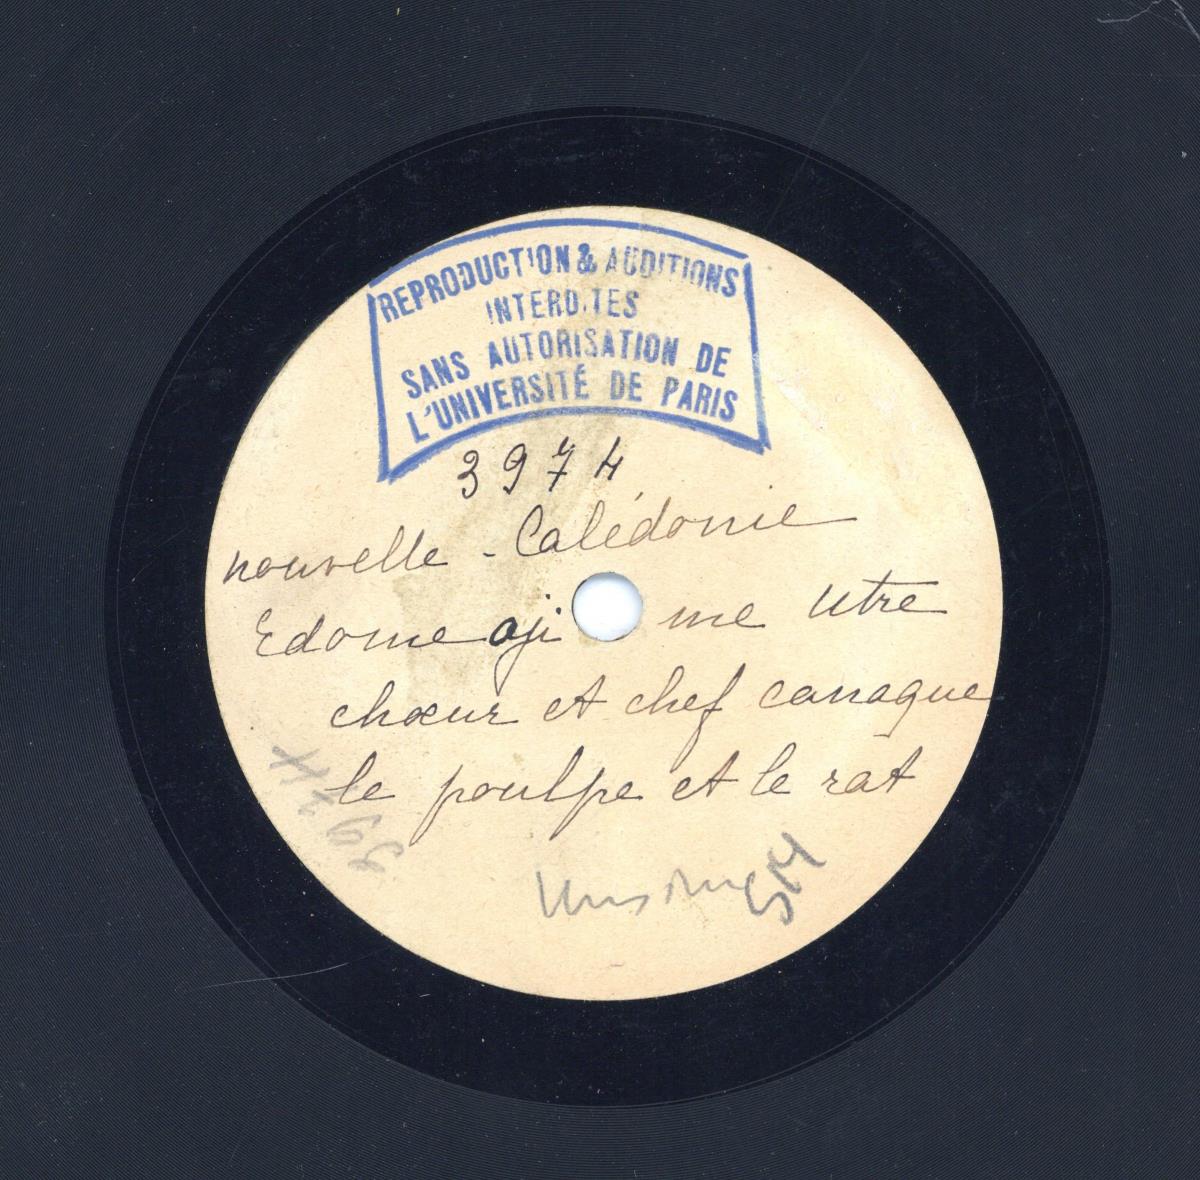 REPRODUCTION & AUDITIONS
INTERDITES
SANS AUTORISATION DE
L'UNIVERSITÉ DE PARIS
3974
nouvelle - Calédonie
Edome aji me Utre
chœur et chef canaque
le poulpe et le rat
3974